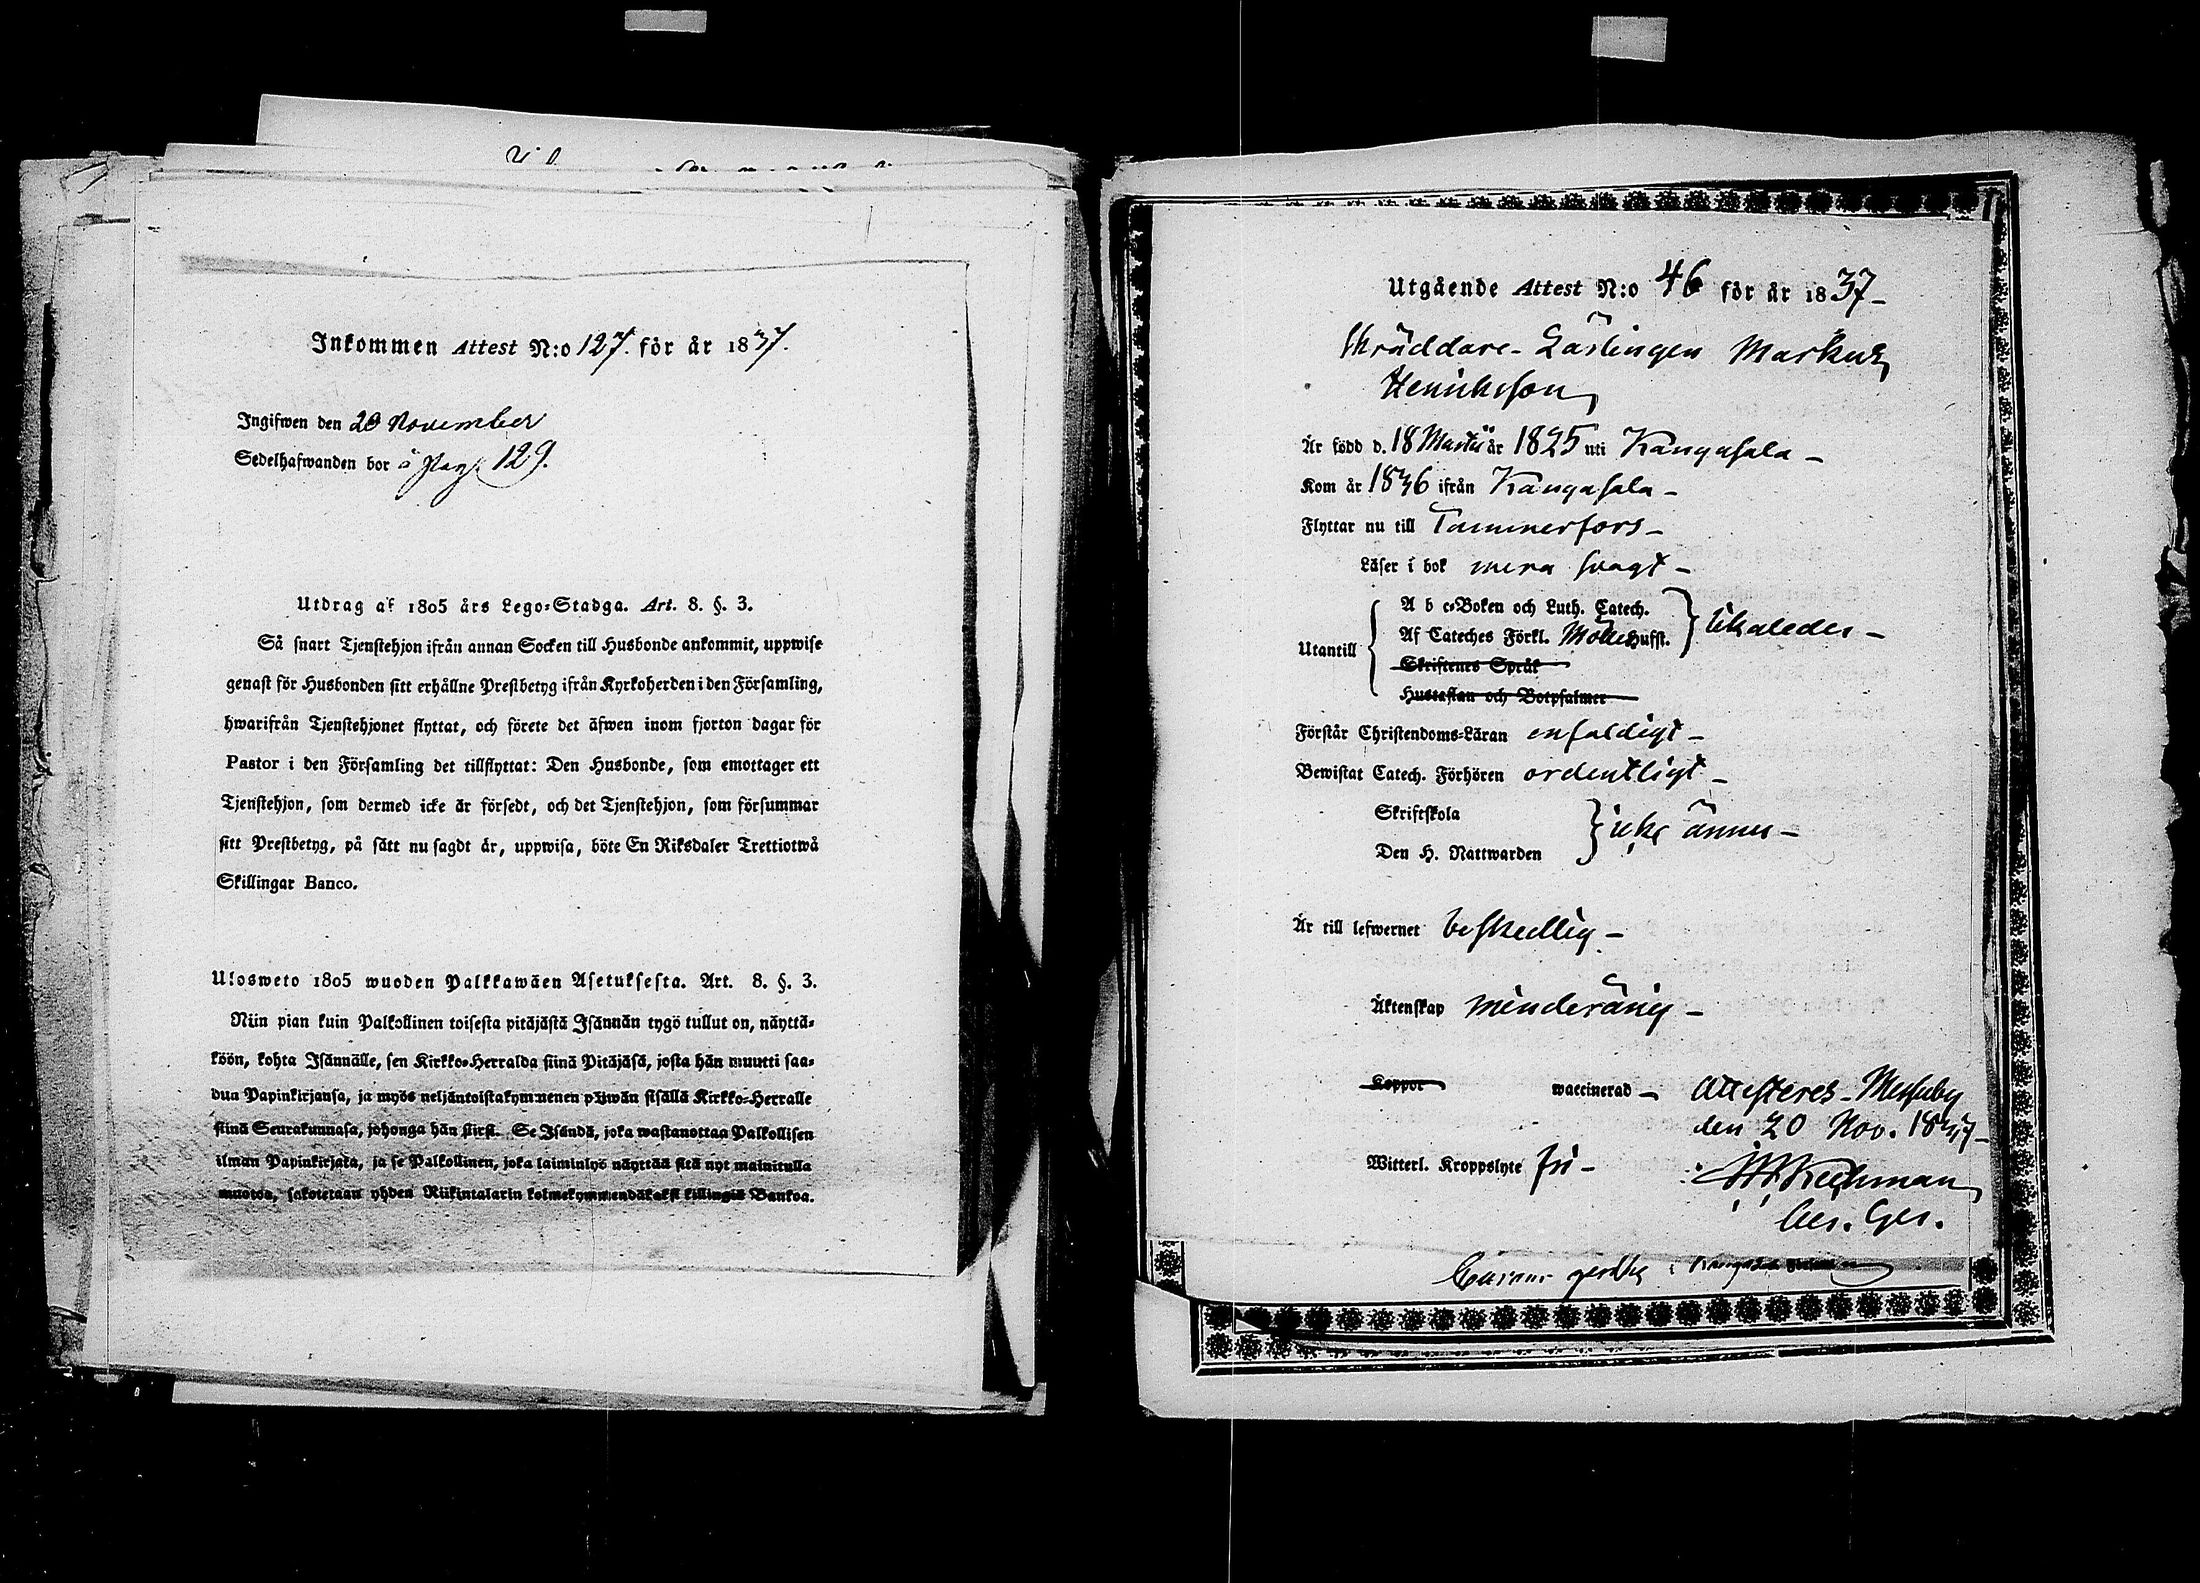 Inkommen Attest N:o 127. för år 1837.
Ingifwen den 20 November
Sedelhafwanden bor å pag. 129.
Utdrag af 1805 års Lego-Stadga. Art. 8. §. 3.
Så snart Tjenstehjon ifrån annan Socken till Husbonde ankommit, uppwise
genast för Husbonden sitt erhållne Prestbetyg ifrån Kyrkoherden i den Församling,
hwarifrån Tjenstehjonet flyttat, och förete det äfwen inom fjorton dagar för
Pastor i den Församling det tillflyttat: Den Husbonde, som emottager ett
Tjenstehjon, som dermed icke är försedt, och det Tjenstehjon, som försummar
sitt Prestbetyg, på sätt nu sagdt är, uppwisa, böte En Riksdaler Trettiotwå
Skillingar Banco.
Ulosweto 1805 wuoden Palkkawäen Asetuksesta. Art. 8. §. 3.
Niin pian kuin Palkollinen toisesta pitäjästä Isännän tygö tullut on, näyttä-
köön, kohta Isännälle, sen Kirkko-Herralda siinä Pitäjäsä, josta hän muutti saa-
dun Papinkirjansa, ja myös neljäntoistakymmenen päiwän sisällä Kirkko-Herralle
siinä Seurakunnasa, johonga hän siirsi. Se Isändä, joka wastanottaa Palkollisen
ilman Papinkirjata, ja se Palkollinen, joka laiminlyö näyttää sitä nyt mainitulla
muotoa, sakotetaan yhden Riikintalarin kolmekymmendäkaksi killingiä Bankoa.
Utgående Attest N:o 46 för år 1837 –
Skräddare-Lärlingen Markus
Henriksson
Är född d. 18 Martii år 1825 uti Kangasala –
Kom år 1836 ifrån Kangasala –
Flyttar nu till Tammerfors –
Läser i bok mera svagt –
A b c-Boken och Luth. Catech.
Utantill Af Cateches Förkl. Hufst. likaledes –
Skriftenes Språk
Hustaflan och Botpsalmer
Förstår Christendoms-Läran enfaldigt –
Bewistat Catech. Förhören ordentligt –
Skriftskola
icke ännu –
Den H. Nattwarden
Är till lefwernet beskedlig –
Äktenskap minderårig –
Koppor waccinerad – Attesteres – Messuby
den 20 Nov. 1837 –
Witterl. Kroppslyte fri –